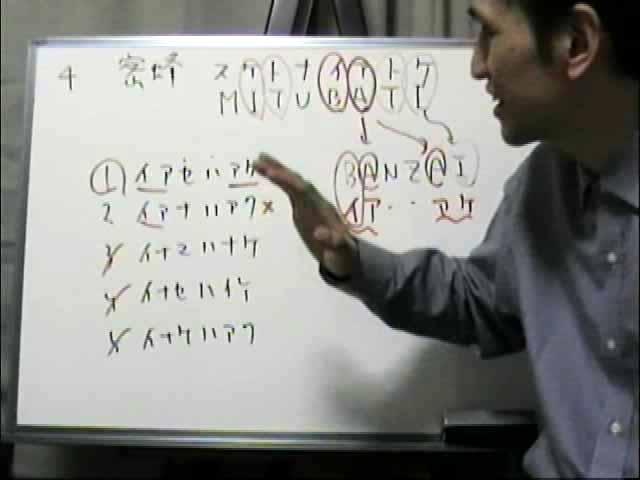 4 密蜂 スケトナイアトケ
MITUBATI
1 イアセハアケ
BANZAI
2 イアナハアク×
イア・・アケ
イナミハナケ
イナセハイケ
イナケハアク